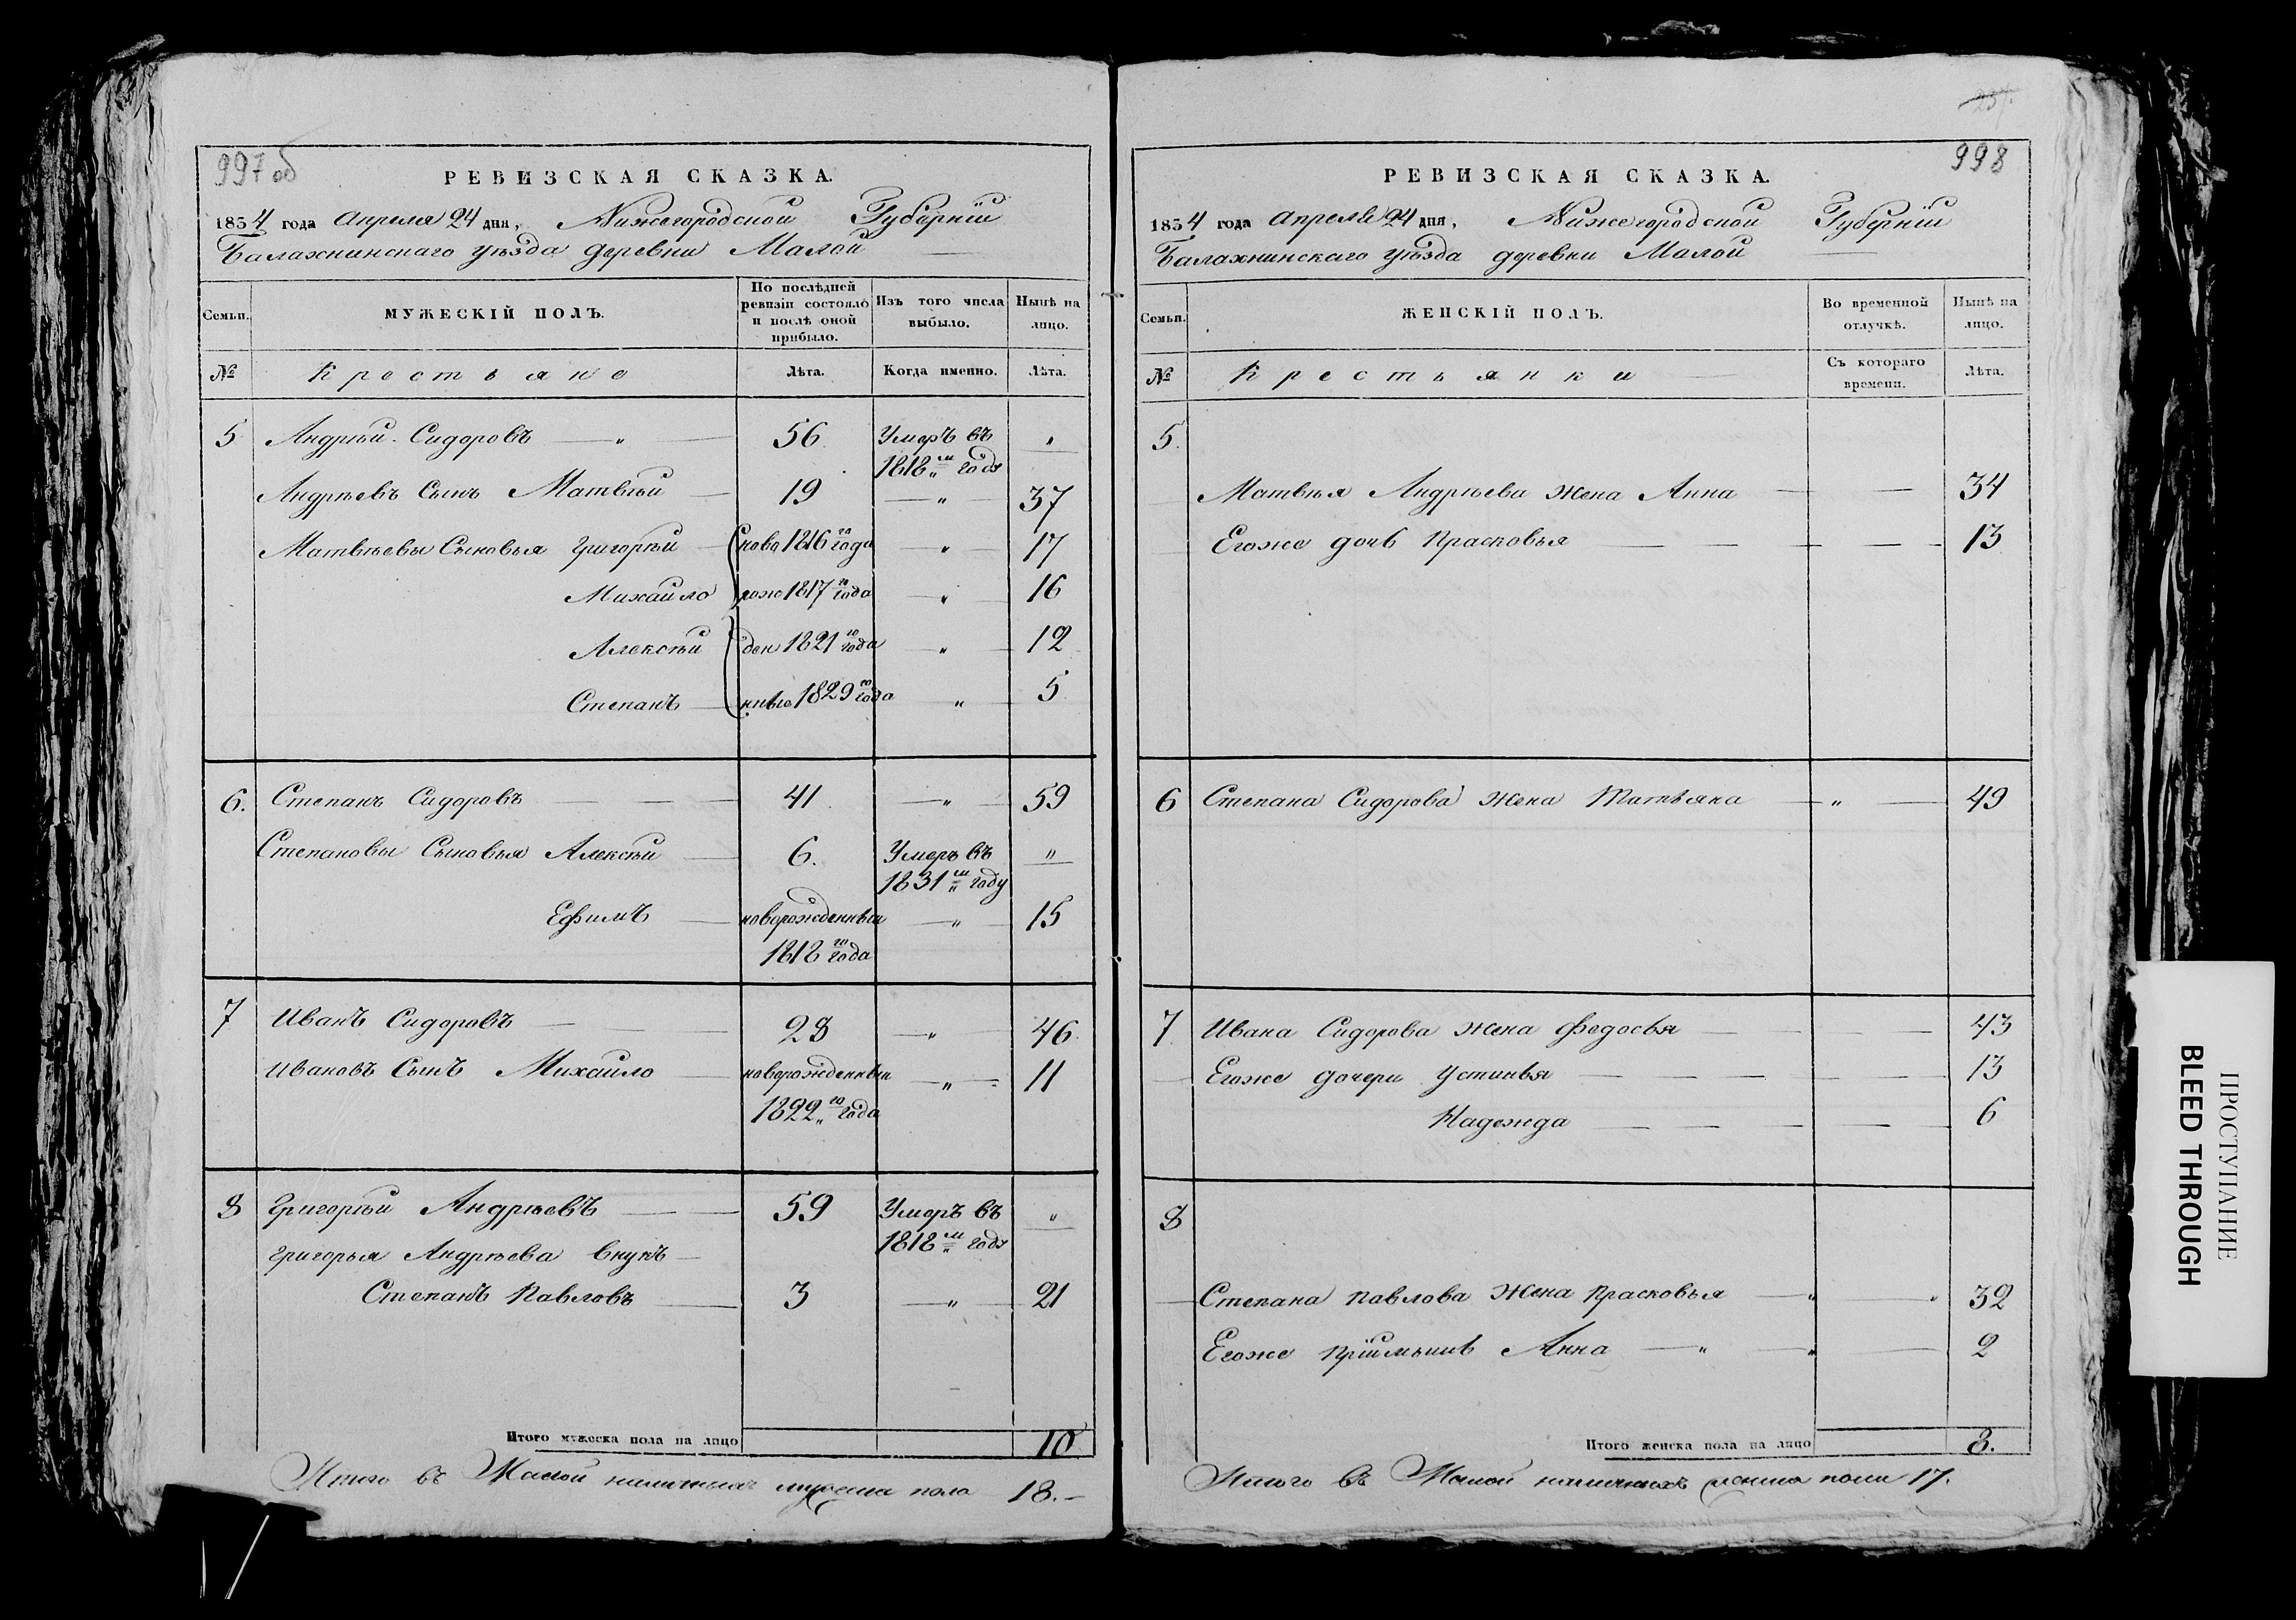 997 об
РЕВИЗСКАЯ СКАЗКА.
1834 года Апреля 24 дня, Нижегородской Губернiи
Балахнинскаго уѣзда деревни Малой
Семьи.
МУЖЕСКІЙ ПОЛЪ.
По послѣдней ревизіи состояло и послѣ оной прибыло.
Изъ того числа выбыло.
Нынѣ на лицо.
№
Крестьяне
Лѣта.
Когда именно.
Лѣта.
5 Андрѣй Сидоровъ — 56 Умеръ въ
1818м году
Андрѣевъ Сынъ Матвѣй — 19 — 37
Матвѣевы Сыновья Григорѣй — (ново 1816го года — 17
Михайло рож 1817го года — 16
Алексѣй ден 1821го года — 12
Степанъ — нные 1829го года — 5
6. Степанъ Сидоровъ — 41. — 59
Степановы Сыновья Алексѣй — 6. Умеръ въ
1831м году
Ефимъ — новорожденный — 15
1818го года
7 Иванъ Сидоровъ — 28 — 46
Ивановъ Сынъ Михайло — новорожденный — 11
1822го года
8 Григорѣй Андрѣевъ — 59 Умеръ въ
1818м году
Григорья Андрѣева внукъ —
Степанъ Павловъ — 3 — 21
Итого мужеска пола на лицо 10
Итого въ Малой наличныхъ мужеска пола 18.—
998
РЕВИЗСКАЯ СКАЗКА.
1834 года Апреля 24 дня, Нижегородской Губернiи
Балахнинскаго уѣзда деревни Малой
Семьи.
ЖЕНСКІЙ ПОЛЪ.
Во временной отлучкѣ.
Нынѣ на лицо.
№
Крестьянки
Съ котораго времени.
Лѣта.
5.
Матвѣя Андрѣева жена Анна — 34
Егоже дочь Прасковья — 13
6 Степана Сидорова жена Татьяна — 49
7 Ивана Сидорова жена Федосья — 43
Егоже дочери Устинья — 13
Надежда — 6
8
Степана Павлова жена Прасковья — 32
Егоже прiимышъ Анна — 2
Итого женска пола на лицо 8.
Итого въ Малой наличныхъ женска пола 17.
ПРОСТУПАНИЕ
BLEED THROUGH